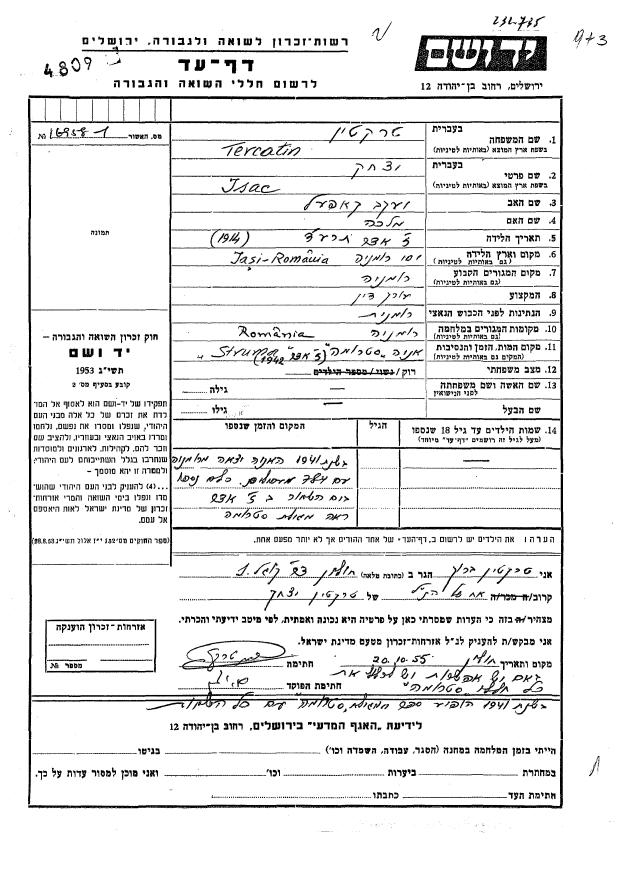 232.735
רשות-זכרון לשואה ולגבורה, ירושלים
יד ושם
9+3
4309
דף-עד
לרשום חללי השואה והגבורה
ירושלים, רחוב בן-יהודה 12
מס. האשור № 16958-1
1. שם המשפחה
בעברית טרקטין
בשפת ארץ המוצא (באותיות לטיניות) Tercatin
2. שם פרטי
בעברית יצחק
בשפת ארץ המוצא (באותיות לטיניות) Isac
3. שם האב יעקב קאפעל
4. שם האם מלכה
5. תאריך הלידה ז' אדר תרע"ד (1914)
תמונה
6. מקום וארץ הלידה יסי רומניה Iasi-România
(גם באותיות לטיניות)
7. מקום המגורים הקבוע רומניה
(גם באותיות לטיניות)
8. המקצוע עורך דין
9. הנתינות לפני הכבוש הנאצי רומנית
10. מקומות המגורים במלחמה רומניה România
(גם באותיות לטיניות)
11. מקום המות, הזמן והנסיבות אניה "סטרומה" (ז' אדר 1942) "Struma"
(המקום גם באותיות לטיניות)
12. מצב משפחתי רווק/נשוי/מספר הילדים
13. שם האשה ושם משפחתה
לפני הנישואין — גילה —
שם הבעל — גילו —
חוק זכרון השואה והגבורה –
יד ושם
תשי"ג 1953
קובע בסעיף מס' 2
תפקידו של יד-ושם הוא לאסוף אל המו
לדת את זכרם של כל אלה מבני העם
היהודי, שנפלו ומסרו את נפשם, נלחמו
ומרדו באויב הנאצי ובעוזריו, ולהציב שם
וזכר להם, לקהילות, לארגונים ולמוסדות
שנחרבו בגלל השתייכותם לעם היהודי;
ולמטרה זו יהא מוסמך –
...(4) להעניק לבני העם היהודי שהושי
מדו ונפלו בימי השואה והמרי אזרחות-
זכרון של מדינת ישראל לאות היאספם
אל עמם.
(ספר החוקים מס' 132, י"ז אלול תשי"ג 28.8.53)
14. שמות הילדים עד גיל 18 שנספו
(מעל לגיל זה רושמים "דף-עד" מיוחד)
הגיל
המקום והזמן שנספו
בשנת 1941 האניה יצאה מרומניה
עם מעפילים, כולם נספו
ביום ב ז' אדר
ראה מגילת סטרומה
הערה: את הילדים יש לרשום ב"דף-העד" של אחד ההורים אך לא יותר מפעם אחת.
אני טרקטין ברוך הגר ב (כתובת מלאה) חולון
קרוב/ה מכר/ה אח של הנ"ל של טרקטין יצחק
מצהיר/ה בזה כי העדות שמסרתי כאן על פרטיה היא נכונה ואמתית, לפי מיטב ידיעתי והכרתי.
אני מבקש/ת להעניק לנ"ל אזרחות-זכרון מטעם מדינת ישראל.
מקום ותאריך חולון 20.10.55 חתימה
חתימת הפוקד
אזרחות-זכרון הוענקה
מספר №
באם יש אפשרות יש את
כל חללי "סטרומה"
בשנת 1941 הופיע ספר המגילת "סטרומה" עם כל השמות
לידיעת "האגף המדעי" בירושלים, רחוב בן-יהודה 12
הייתי בזמן המלחמה במחנה (הסגר, עבודה, השמדה וכו') בגיטו
במחתרת ביערות וכו' ואני מוכן למסור עדות על כך.
חתימת העד כתבתו